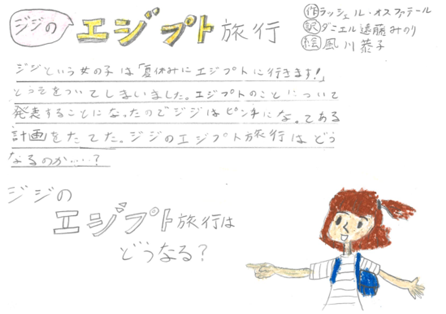 ジジの エジプト旅行
作 ラッシェル・オスファテール
訳 ダニエル遠藤みのり
絵 風川恭子
ジジという女の子は「夏休みにエジプトに行きます!」
とうそをついてしまいました。エジプトのことについて
発表することになったのでジジはピンチになってある
計画をたてた。ジジのエジプト旅行はどう
なるのか・・・?
ジジの
エジプト旅行は
どうなる?